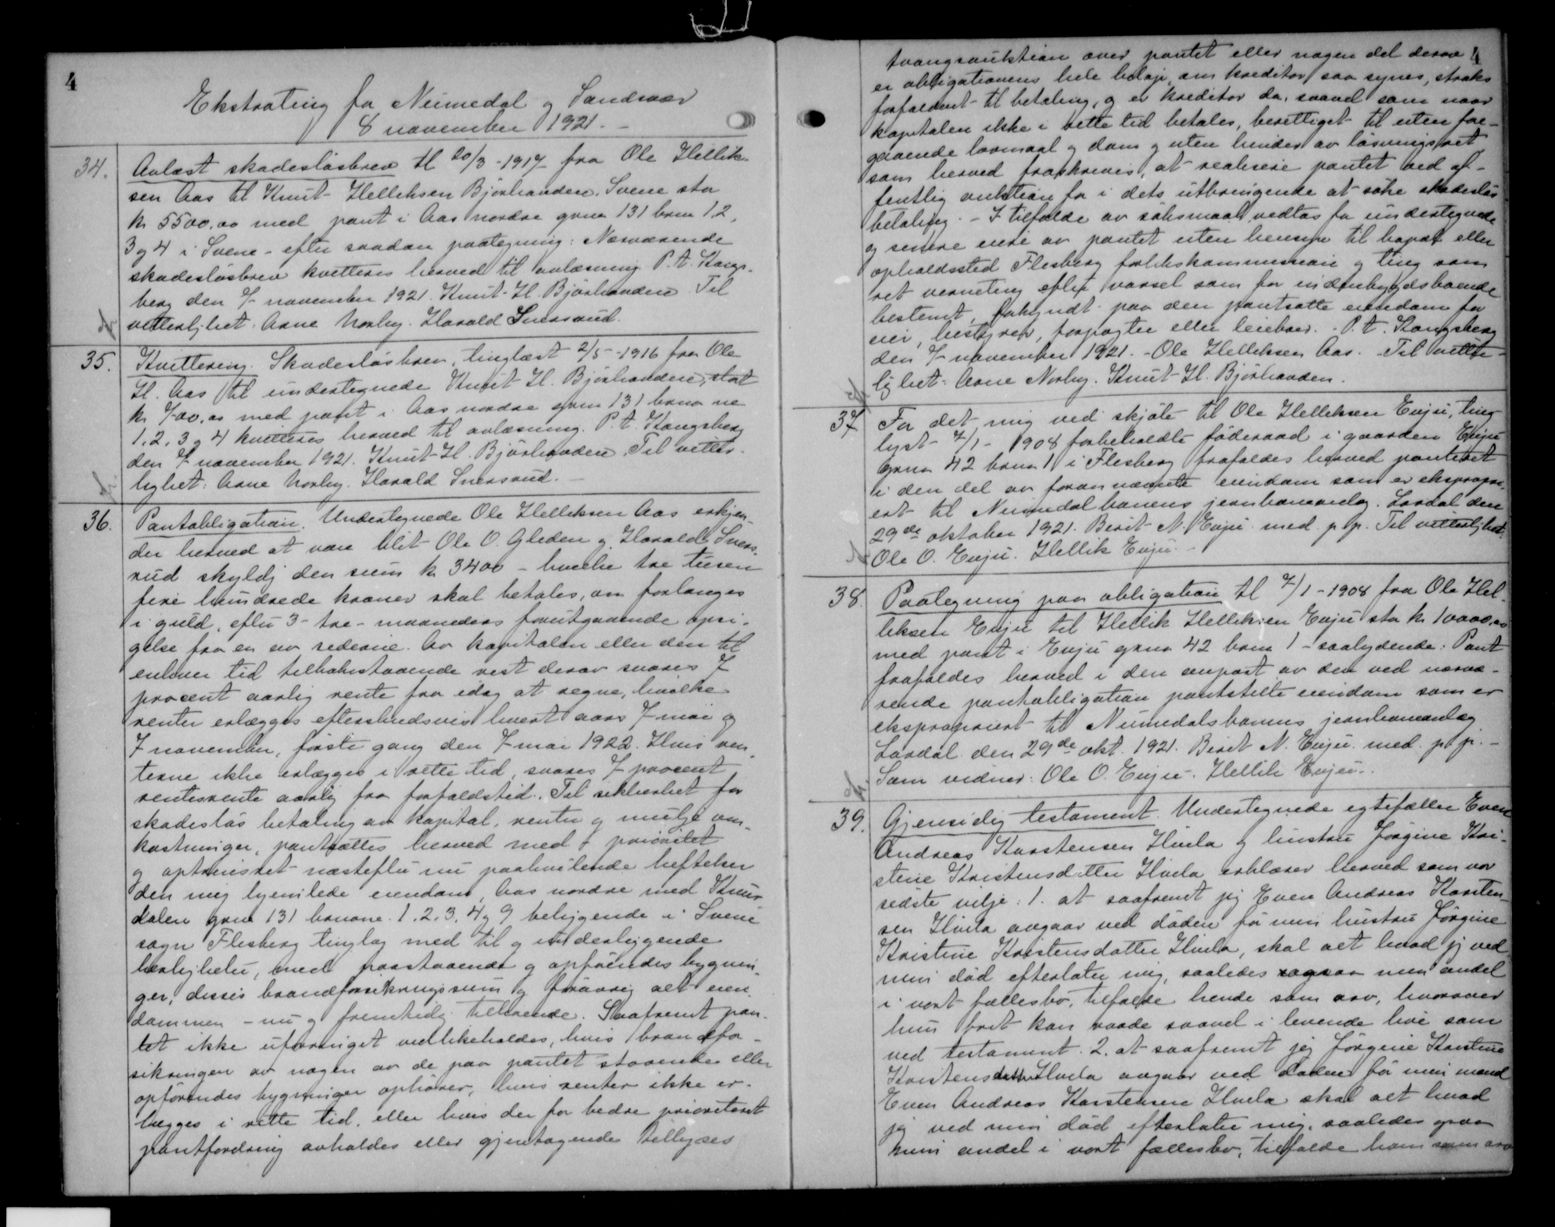 4
Ekstrating for Numedal og Sandsvær
8 november 1921. -
34.
Avlæst skadesløsbrev tl 20/3-1917 fra Ole Hellik-
sen Aas til Knut Helleksen Bjørhanden, Svene stor
kr 5500,00 med pant i Aas nordre gnrn 131 brnr 1, 2,
3 og 4 i Svene - efter saadan paategning: Nærværende
skadesløsbrev kvitteres herved til avlæsning. P.t. Kongs-
berg den 7 november 1921. Knut H. Bjørhanden. Til
vitterlighet: Arne Norby. Harald Snersrud.
35.
Kvittering. Skadesløsbrev, tinglæst 2/5-1916 fra Ole
H. Aas til undertegnede Knut H. Bjørhanden, stort
kr 700,00 med pant i Aas nordre gnrn 131 brnr ne
1, 2, 3 og 4 kvitteres herved til avlæsning. P.t. Kongsberg
den 7 november 1921. Knut H. Bjørhanden. Til vitter-
lighet: Arne Norby. Harald Snersrud. -
36.
Pantobligation. Undertegnede Ole Helleksen Aas erkjen-
der herved at være blit Ole O. Gleden og Harald Sners-
rud skyldig den sum kr 3400 - hvilke tre tusen
fire hundrede kroner skal betales, om forlanges
i guld, efter 3 - tre - maaneders forutgaaende opsi-
gelse fra en av siderne. Av kapitalen eller den til
enhver tid tilbakestaaende rest derav svares 7
procent aarlig rente fra idag at regne, hvilke
renter erlægges efterskudsvis hvert aars 7 mai og
7 november, første gang den 7 mai 1922. Hvis ren-
terne ikke erlægges i rette tid, svares 7 procent
rentesrente aarlig fra forfaldstid. Til sikkerhet for
skadesløs betaling av kapital, renter og mulige om-
kostninger, pantsættes herved med prioritet
og optrinsret næstefter nu paahvilende heftelser
den mig hjemlede eiendom, Aas nordre med Knur-
dalen gnrn 131 brnrne 1, 2, 3, 4 og 9 beliggende i Svene
sogn Flesberg tinglag med til og underliggende
herligheter, med paastaaende og opførendes bygnin-
ger, disses brandforsikringssum og forøvrig alt eien-
dommen - nu og fremtidig tilhørende. Saafremt pan-
tet ikke uforringet vedlikeholdes, hvis brandfor-
sikringen av nogen av de paa pantet staaende eller
opførendes bygninger ophører, hvis renter ikke er-
lægges i rette tid, eller hvis der for bedre prioritert
pantfordring avholdes eller gjentagende tillyses
4
tvangsauktion over pantet eller nogen del derav
er obligationens hele beløp, om kreditor saa synes, straks
forfaldent til betaling, og er kreditor da, saavel som naar
kapitalen ikke i rette tid betales, berettiget til uten fore-
gaaende lovmaal og dom og uten hinder av løsningsret,
som herved fraskrives, at realisere pantet ved of-
fentlig auktion for i dets utbringende at søke skadesløs
betaling. - I tilfælde av søksmaal vedtas for undertegnede
og senere eiere av pantet uten hensyn til bopæl eller
opholdssted Flesberg forlikskommission og ting som
ret verneting efter varsel som for indenbygdsboende
bestemt, forkyndt paa den pantsatte eiendom for
eier, bestyrer, forpagter eller leieboer. - P.t. Kongsberg
den 7 november 1921. - Ole Helleksen Aas. - Til vitter-
lighet: Arne Norby. Knut H. Bjørhanden.
37
For det mig ved skjøte til Ole Helleksen Enju, ting-
lyst 7/1 - 1908 forbeholdte føderaad i gaarden Enju
gnrn 42 brnr 1 i Flesberg frafaldes herved panteret
i den del av forannævnte eiendom som er ekspropri-
ert til Numedalsbanens jernbaneanlæg. Lardal den
29de oktober 1921. Berit N. Enju. med. p. p. Til vitterlighet:
Ole O. Enju. Hellik Enju. -
38.
Paategning paa obligation tl 7/1-1908 fra Ole Hel-
leksen Enju til Hellik Helleksen Enju stor kr 10000,00
med pant i Enju gnrn 42 brnr 1 - saalydende: Pant
frafaldes herved i den enpart av den ved nærvæ-
rende pantobligation pantstilte eiendom som er
ekspropriert til Numedalsbanens jernbaneanlæg
Lardal den 29de okt. 1921. Berit N. Enju. med. p. p. -
Som vidner: Ole O. Enju. Hellik Enju. -
39.
Gjensidig testament. Undertegnede egtefæller Even
Andreas Karstensen Hvila og hustru Jørgine Kri-
stine Kristensdatter Hvila erklærer herved som vor
sidste vilje: 1. at saafremt jeg Even Andreas Karsten-
sen Hvila avgaar ved døden før min hustru Jørgine
Kristine Kristensdatter Hvila, skal alt hvad jeg ved
min død efterlater mig, saaledes ogsaa min andel
i vort fællesbo, tilfalde hende som arv, hvorover
hun frit kan raade saavel i levende live som
ved testament. 2. at saafremt jeg Jørgine Kristine
Kristensdatter Hvila avgaar ved døden før min mand
Even Andreas Karstensen Hvila skal alt hvad
jeg ved min død efterlater mig, saaledes ogsaa
min andel i vort fællesbo, tilfalde ham som arv